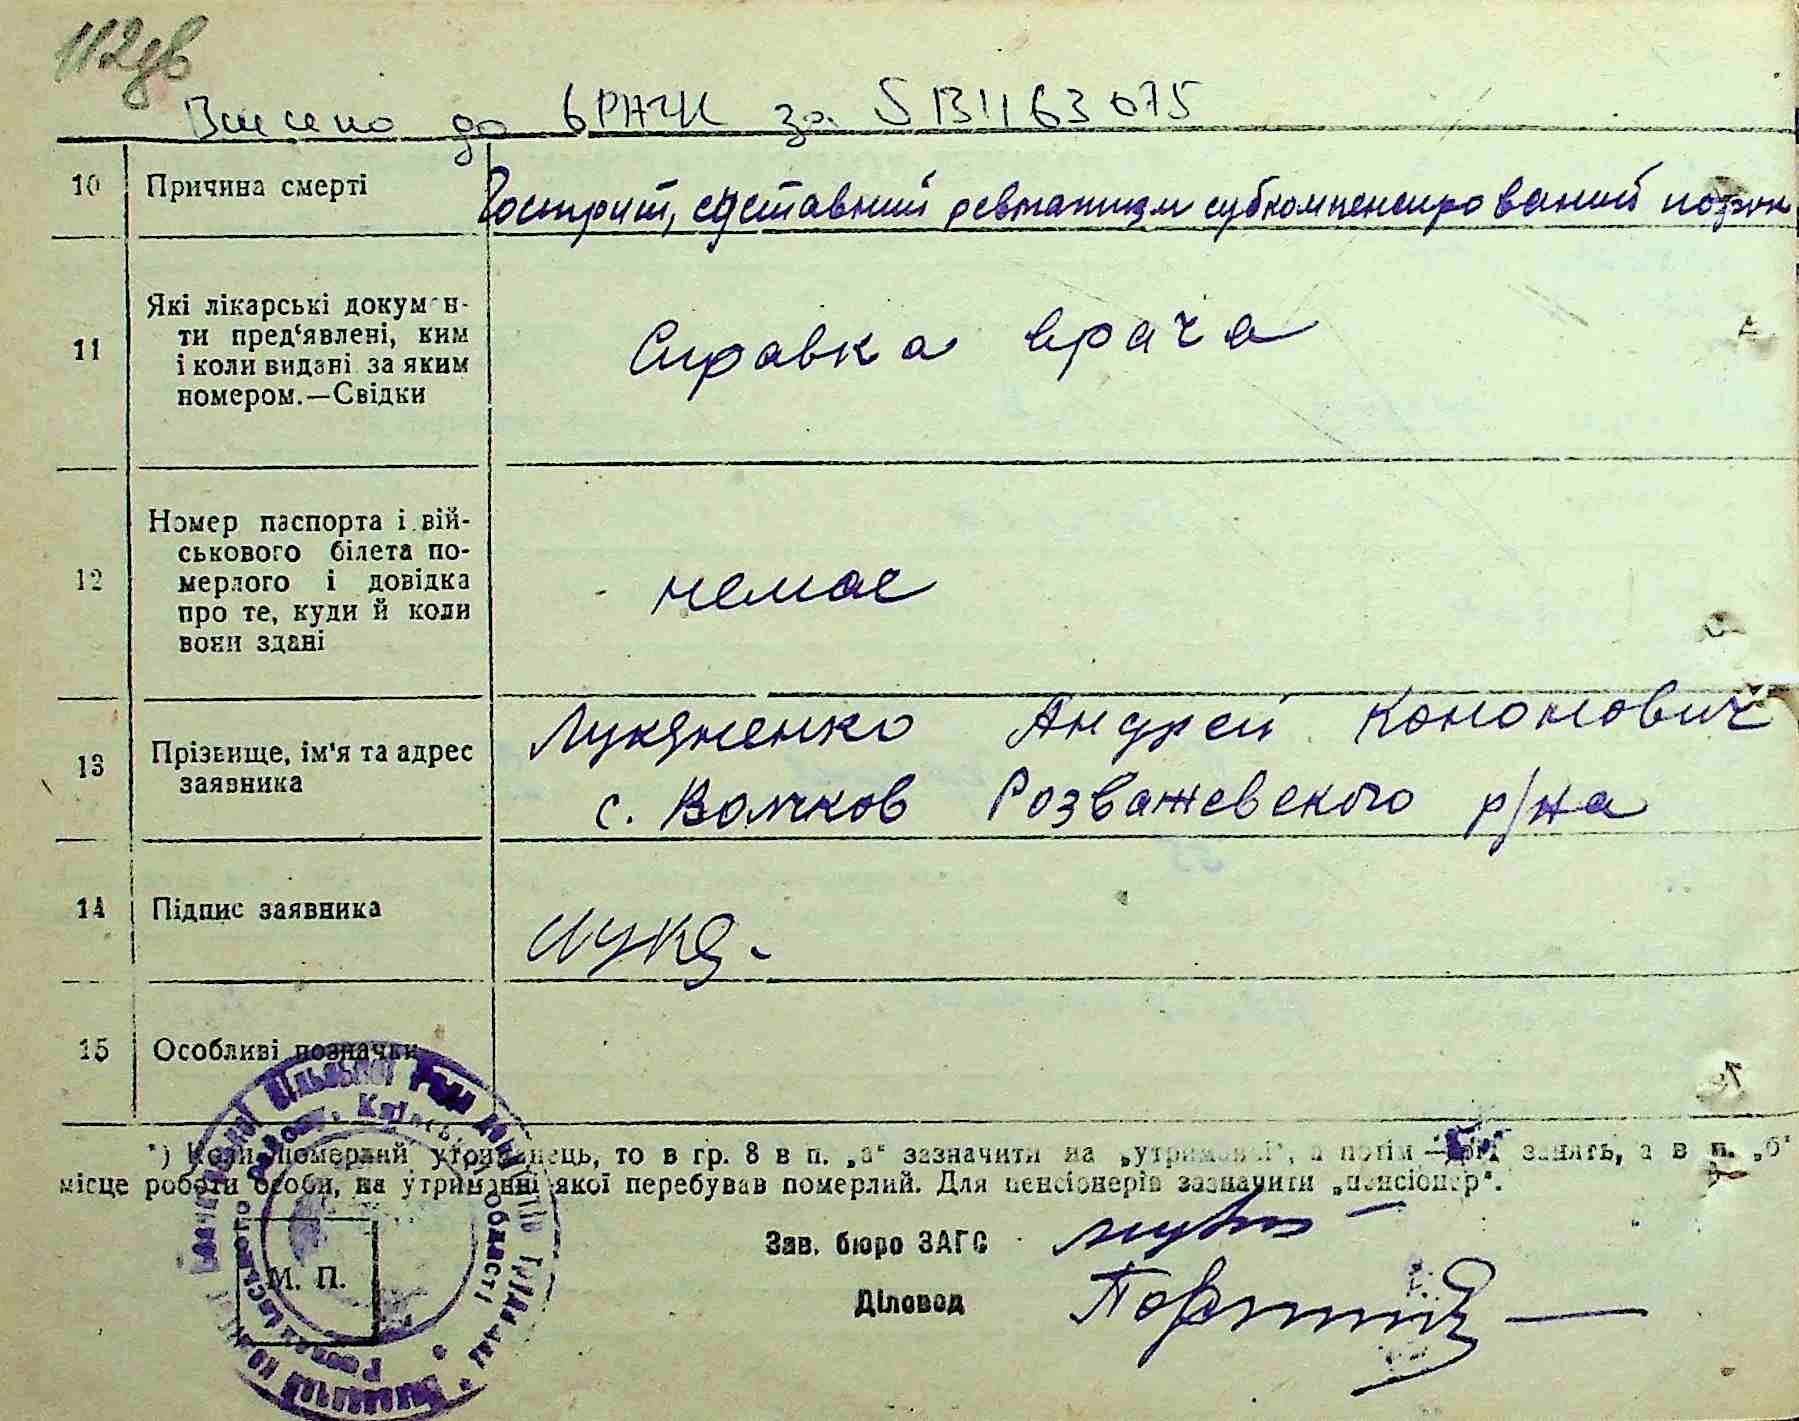 112зв
Внесено до ДРАЦС за 5131163075
10 Причина смерті
Гострит, суставний ревматизм субкомпенсирований порок
11 Які лікарські докумєн-
ти пред'явлені, ким
і коли видані за яким
номером.—Свідки
Справка врача
12 Номер паспорта і вій-
ськового білета по-
мерлого і довідка
про те, куди й коли
вони здані
немає
13 Прізвище, ім'я та адрес
заявника
Лукяненко Андрей Кононович
с. Волчков Розважевского р/на
14 Підпис заявника
Лукя.
15 Особливі позначки
*) Коли померлий утриманець, то в гр. 8 в п. „а“ зазначити на „утриманні“, а потім занять, а в п. „б“
місце роботи особи, на утриманні якої перебував померлий. Для пенсіонерів зазначити „пенсіонер“.
Зав. бюро ЗАГС
Діловод
М. П.